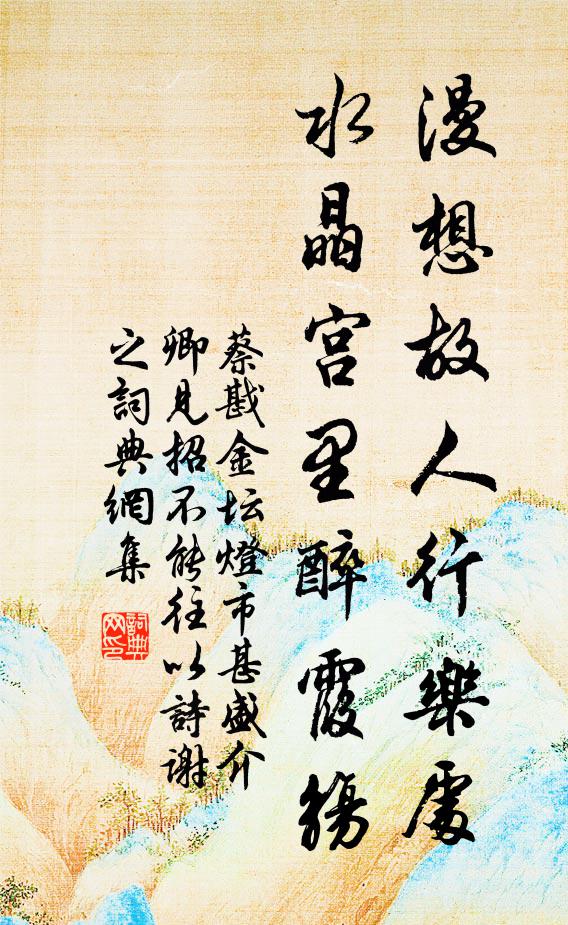 漫想故人行樂處
水晶宮里醉霞觴
蔡戡金坛燈市甚盛介
卿見招不能往以詩謝
之詞典網集
詞典
网印